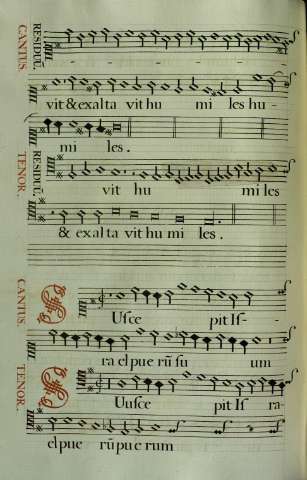 RESIDUŨ.
CANTUS
vit & exal ta vit hu mi les hu -
mi les.
RESIDUŨ.
TENOR.
vit hu mi les
& exal ta vit hu mi les.
CANTUS
Uſce pit Iſ-
ra el pue rũ ſu um
TENOR.
Uuſce pit Iſ ra-
el pue rũ pue rum